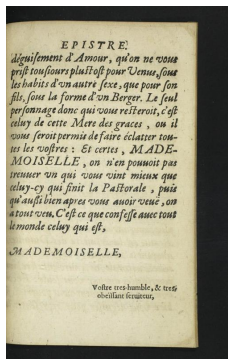 EPISTRE.
déguisement d'Amour, qu'on ne vous
prist tousiours plustost pour Venus, sous
les habits d'vn autre sexe, que pour son
fils, sous la forme d'vn Berger. Le seul
personnage donc qui vous resteroit, c'est
celuy de cette Mere des graces, ou il
vous seroit permis de faire éclatter tou-
tes les vostres: Et certes, MADE-
MOISELLE, on n'en pouuoit pas
treuuer vn qui vous vint mieux que
celuy-cy qui finit la Pastorale, puis
qu'aussi bien apres vous auoir veuë, on
a tout veu. C'est ce que confesse auec tout
le monde celuy qui est,
MADEMOISELLE,
Vostre tres-humble, & tres-
obeïssant seruiteur,